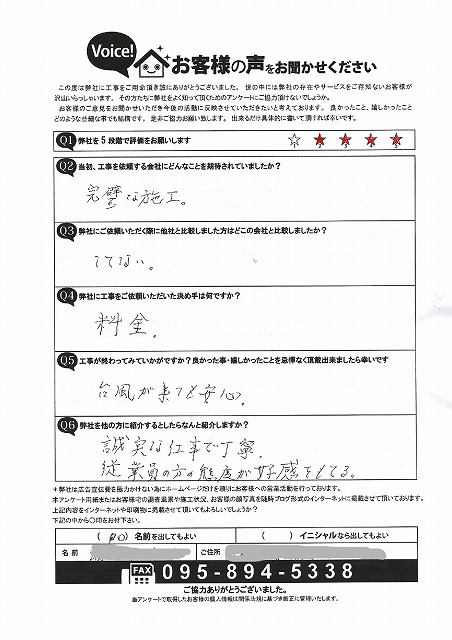 Voice!
お客様の声をお聞かせください
この度は弊社に工事をご用命頂き誠にありがとうございました。 世の中には弊社の存在やサービスをご存知ないお客様が
沢山いらっしゃいます。 その方たちに弊社をよく知って頂くためのアンケートにご協力頂けないでしょうか。
お客様のご意見をお聞かせいただき今後の活動に反映させていただきたいと考えております。 良かったこと、嬉しかったこと
どのような些細な事でも結構です。 是非ご協力お願い致します。 出来るだけ具体的に書いて頂ければ幸いです。
Q1 弊社を5段階で評価をお願いします
1 2 3 4 5
Q2 当初、工事を依頼する会社にどんなことを期待されていましたか?
完璧な施工。
Q3 弊社にご依頼いただく際に他社と比較しました方はどこの会社と比較しましたか?
してない。
Q4 弊社に工事をご依頼いただいた決め手は何ですか?
料金。
Q5 工事が終わってみていかがですか?良かった事・嬉しかったことを忌憚なく頂戴出来ましたら幸いです
台風が来ても安心。
Q6 弊社を他の方に紹介するとしたらなんと紹介しますか?
誠実な仕事で丁寧。
従業員の方の態度が好感をもてる。
*弊社は広告宣伝費を極力かけない為にホームページだけを頼りにお客様への営業活動を行っております。
本アンケート用紙またはお客様宅の調査風景や施工状況、お客様の顔写真を随時ブログ形式のインターネットに掲載させて頂いております。
上記内容をインターネットや印刷物に掲載させて頂いてもよろしいでしょうか?
下記の中から〇印をお付下さい。
( ) 名前を出してもよい ( ) イニシャルなら出してもよい
名前 ご住所
FAX 095-894-5338
ご協力ありがとうございました。
当アンケートで取得したお客様の個人情報は関係法規に基づき厳正に管理いたします。